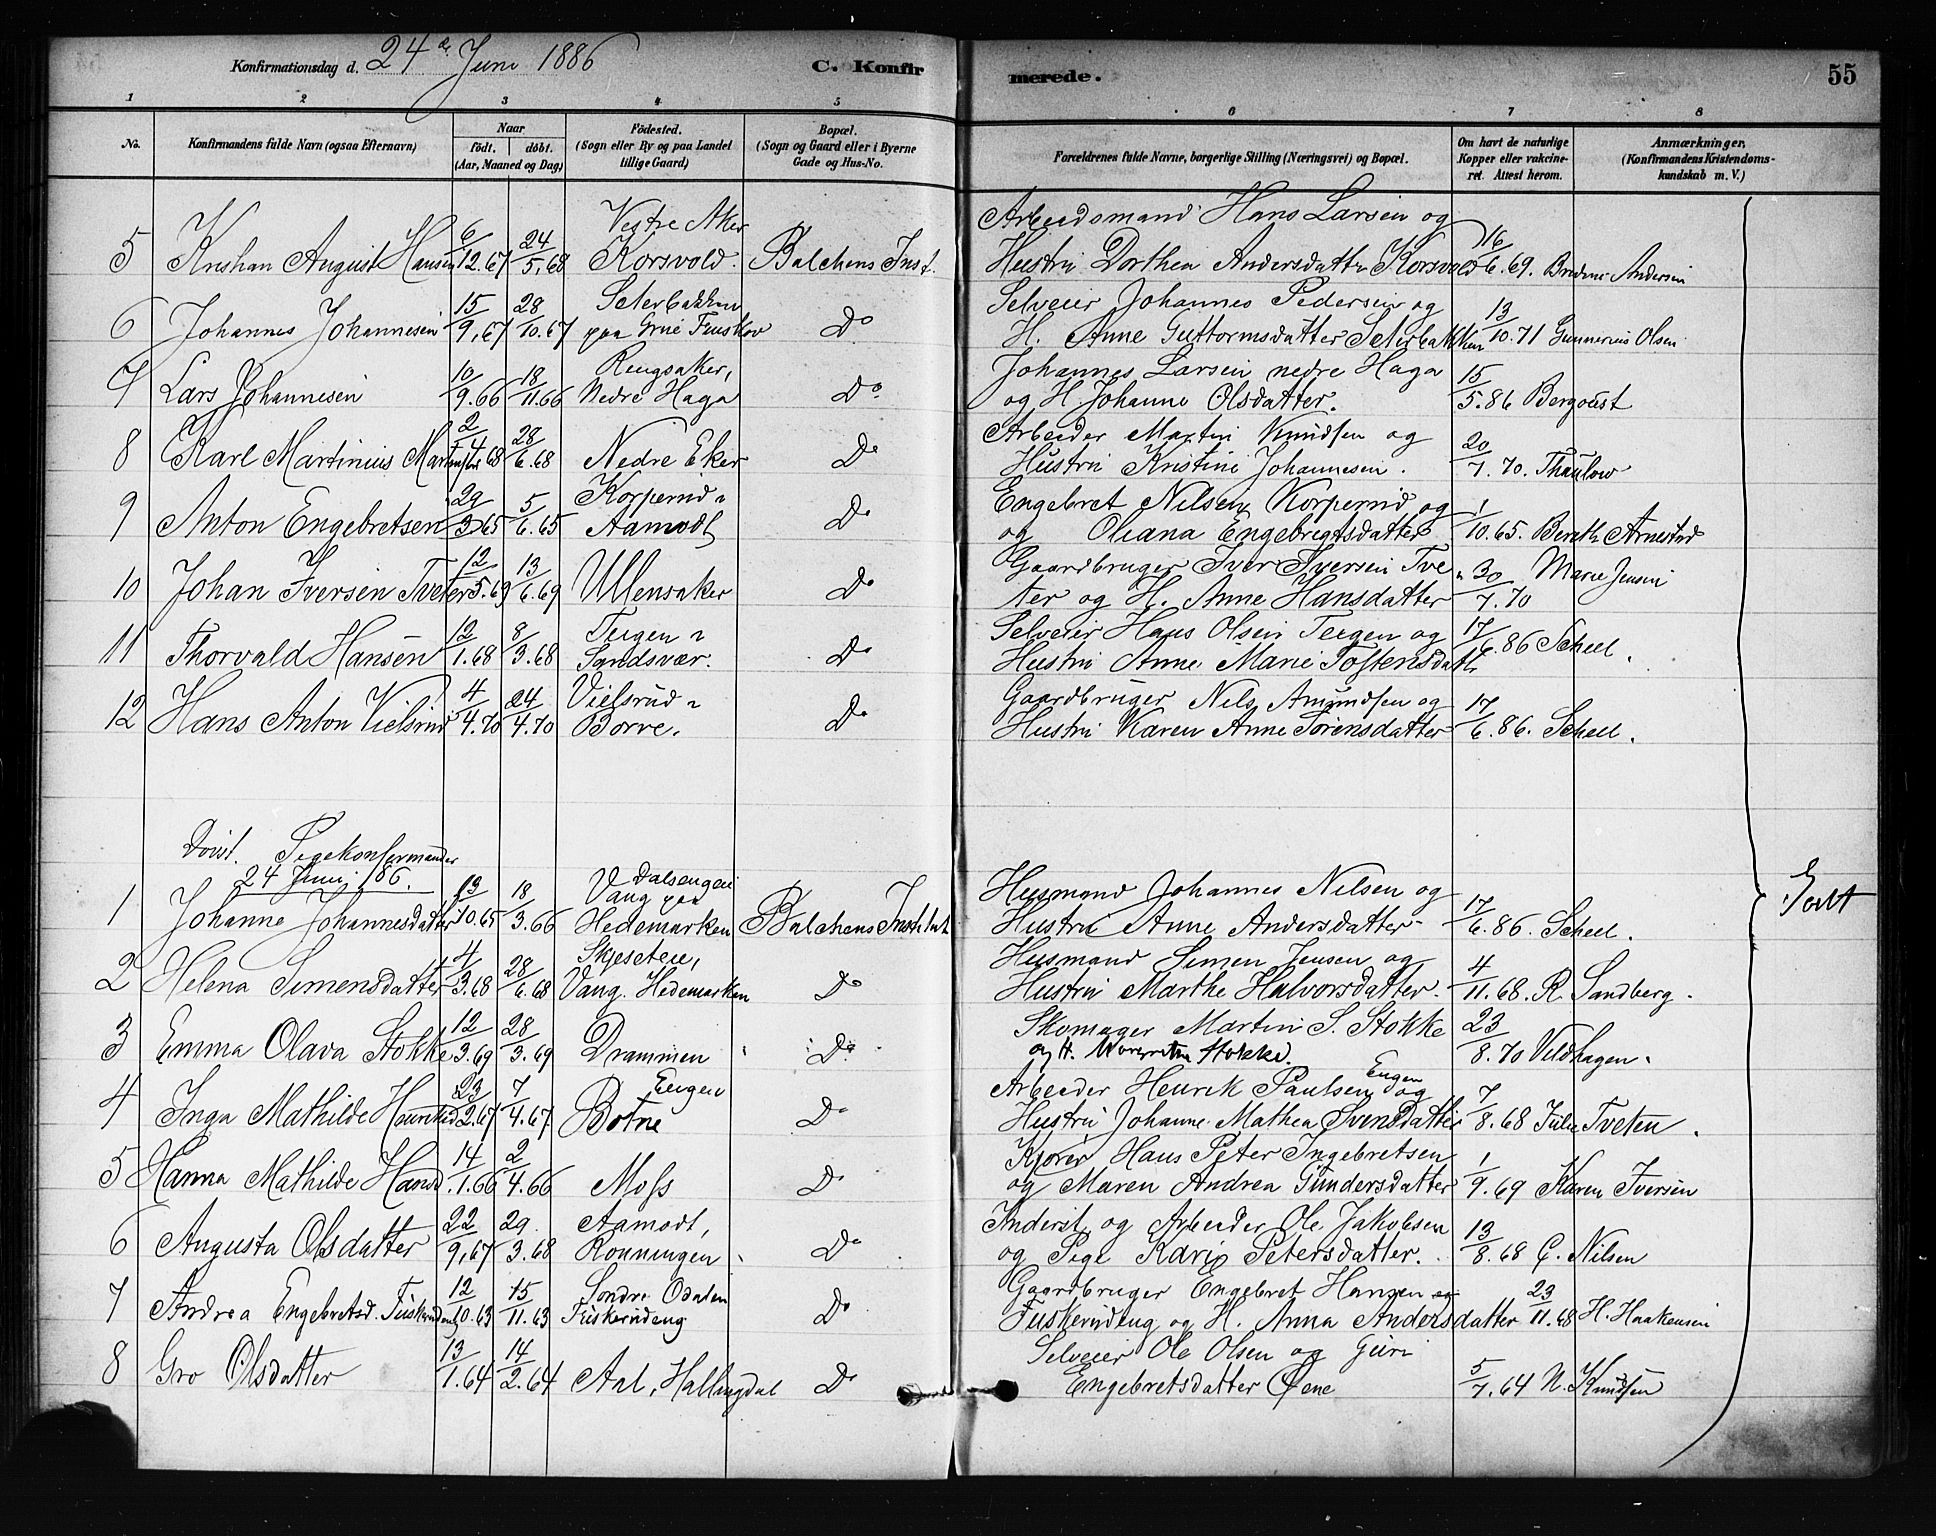 Konfirmationsdag d. 24de Juni 1886
C. Konfirmerede.
55
1 2 3 4 5 6 7 8
No.
Konfirmandens fulde Navn (ogsaa Efternavn)
Naar
födt. döbt.
(Aar, Maaned og Dag)
Födested.
(Sogn eller By og paa Landet tillige Gaard)
Bopæl.
(Sogn og Gaard eller i Byerne Gade og Hus-No.
Forældrenes fulde Navne, borgerlige Stilling (Næringsvei) og Bopæl.
Om havt de naturlige Kopper eller vakcineret. Attest herom.
Anmærkninger,
(Konfirmandens Kristendomskundskab m. V.)
5 Kristian August Hansen 6/12.67 24/5.68 Vestre Aker Korsvold. Balchens Inst. Arbeidsmand Hans Larsen og
Hustru Dorthea Andersdatter Korsvold 16/6.69. Andersen
6 Johannes Johannesen 15/9.67 28/10.67 Seterbakken paa Grue Finskov Do Selveier Johannes Pedersen og
H. Anne Guttormsdatter Seterbakken 13/10.71 Gunnerius Olsen
7 Lars Johannesen 10/9.66 18/11.66 Ringsaker, Nedre Haga Do Johannes Larsen nedre Haga
og H. Johanne Olsdatter. 15/5.86 Bergqvist
8 Karl Martinius Martinsen 2/4 68 28/6.68 Nedre Eker Do Arbeider Martin Knudsen og
Hustru Kristine Johannesen. 20/7.70. Thaulow
9 Anton Engebretsen 29/3.65 5/6.65 Aamodt Do Engebret Nilsen og
og Oliana Engebrigtsdatter 1/10.65. Arnestad
10 Johan Iversen Tveter 12/5.69 13/6.69 Ullensaker Do Gaardbruger Iver Iversen Tve
ter og H. Anne Hansdatter 30/7.70 Marie Jensen
11 Thorvald Hansen 12/1.68 8/3.68 Teigen Sandsvær. Do Selveier Hans Olsen Teigen og
Hustru Anne Marie Tostensdatt 17/6.86 Scheel.
12 Hans Anton Vielsrud 4/4.70 24/4.70 Vielsrud Borre. Do Gaardbruger Nils Amundsen og
Hustru Karen Anne Sørensdatter 17/6.86. Scheel.
Pigekonfirmander
24 Juni 86.
1 Johanne Johannesdatter 13/10.65 18/3.66 Dalsengen Vang paa Hedemarken Balchens Institut Husmand Johannes Nilsen og
Hustru Anne Andersdatter 17/6.86. Scheel.
Godt
2 Helena Simensdatter 4/3.68 28/6.68 Skjeseteie, Vang. Hedemarken Do Husmand Simen Jensen og
Hustru Marthe Halvorsdatter. 4/11.68. R. Sandberg.
3 Emma Olava Stokke 12/3.69 28/3.69 Drammen Do Skomager Martin S. Stokke
og H. Stokke. 23/8.70 Veldhagen.
4 Inga Mathilde Henriksd 23/2.67 7/4.67 Engen Botne Do Arbeider Henrik Paulsen Engen og
Hustru Johanne Mathea Svensdatter 7/8.68 Julie Tveten.
5 Hanna Mathilde Hansd. 14/1.66 2/4.66 Moss Do Kjører Hans Peter Ingebretsen
og Maren Andrea Gundersdatter 1/9.69 Karen Iversen
6 Augusta Olsdatter 22/9.67 29/3.68 Aamodt, Rønningen Do Inderst og Arbeider Ole Jakobsen
og Pige Kari Petersdatter. 13/8.68 C. Nilsen
7 Andrea Engebretsd. Fuskerudeng 12/10.63 15/11.63 Søndre Odalen Fuskerudeng Do Gaardbruger Engebret Hansen
Fuskerudeng og H. Anna Andersdatter 23/11.68 H. Haakensen
8 Gro Olsdatter 13/1.64 14/2.64 Aal, Hallingdal Do Selveier Ole Olsen og Guri
Engebretsdatter Øene 5/7.64 N. Knudsen